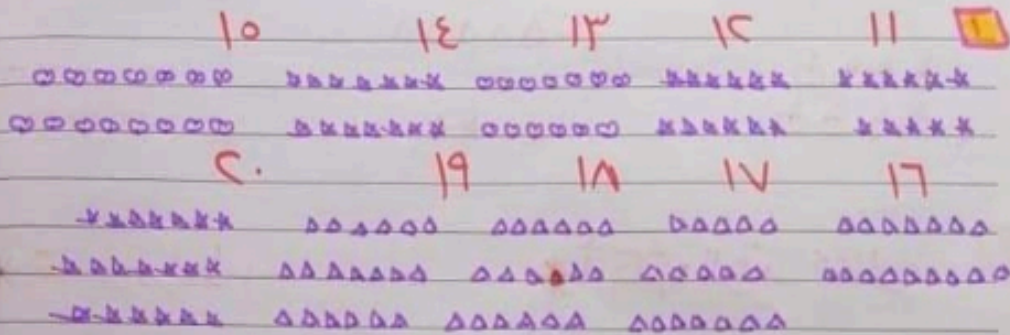 ١ ١١ ١٢ ١٣ ١٤ ١٥
١٦ ١٧ ١٨ ١٩ ٢٠